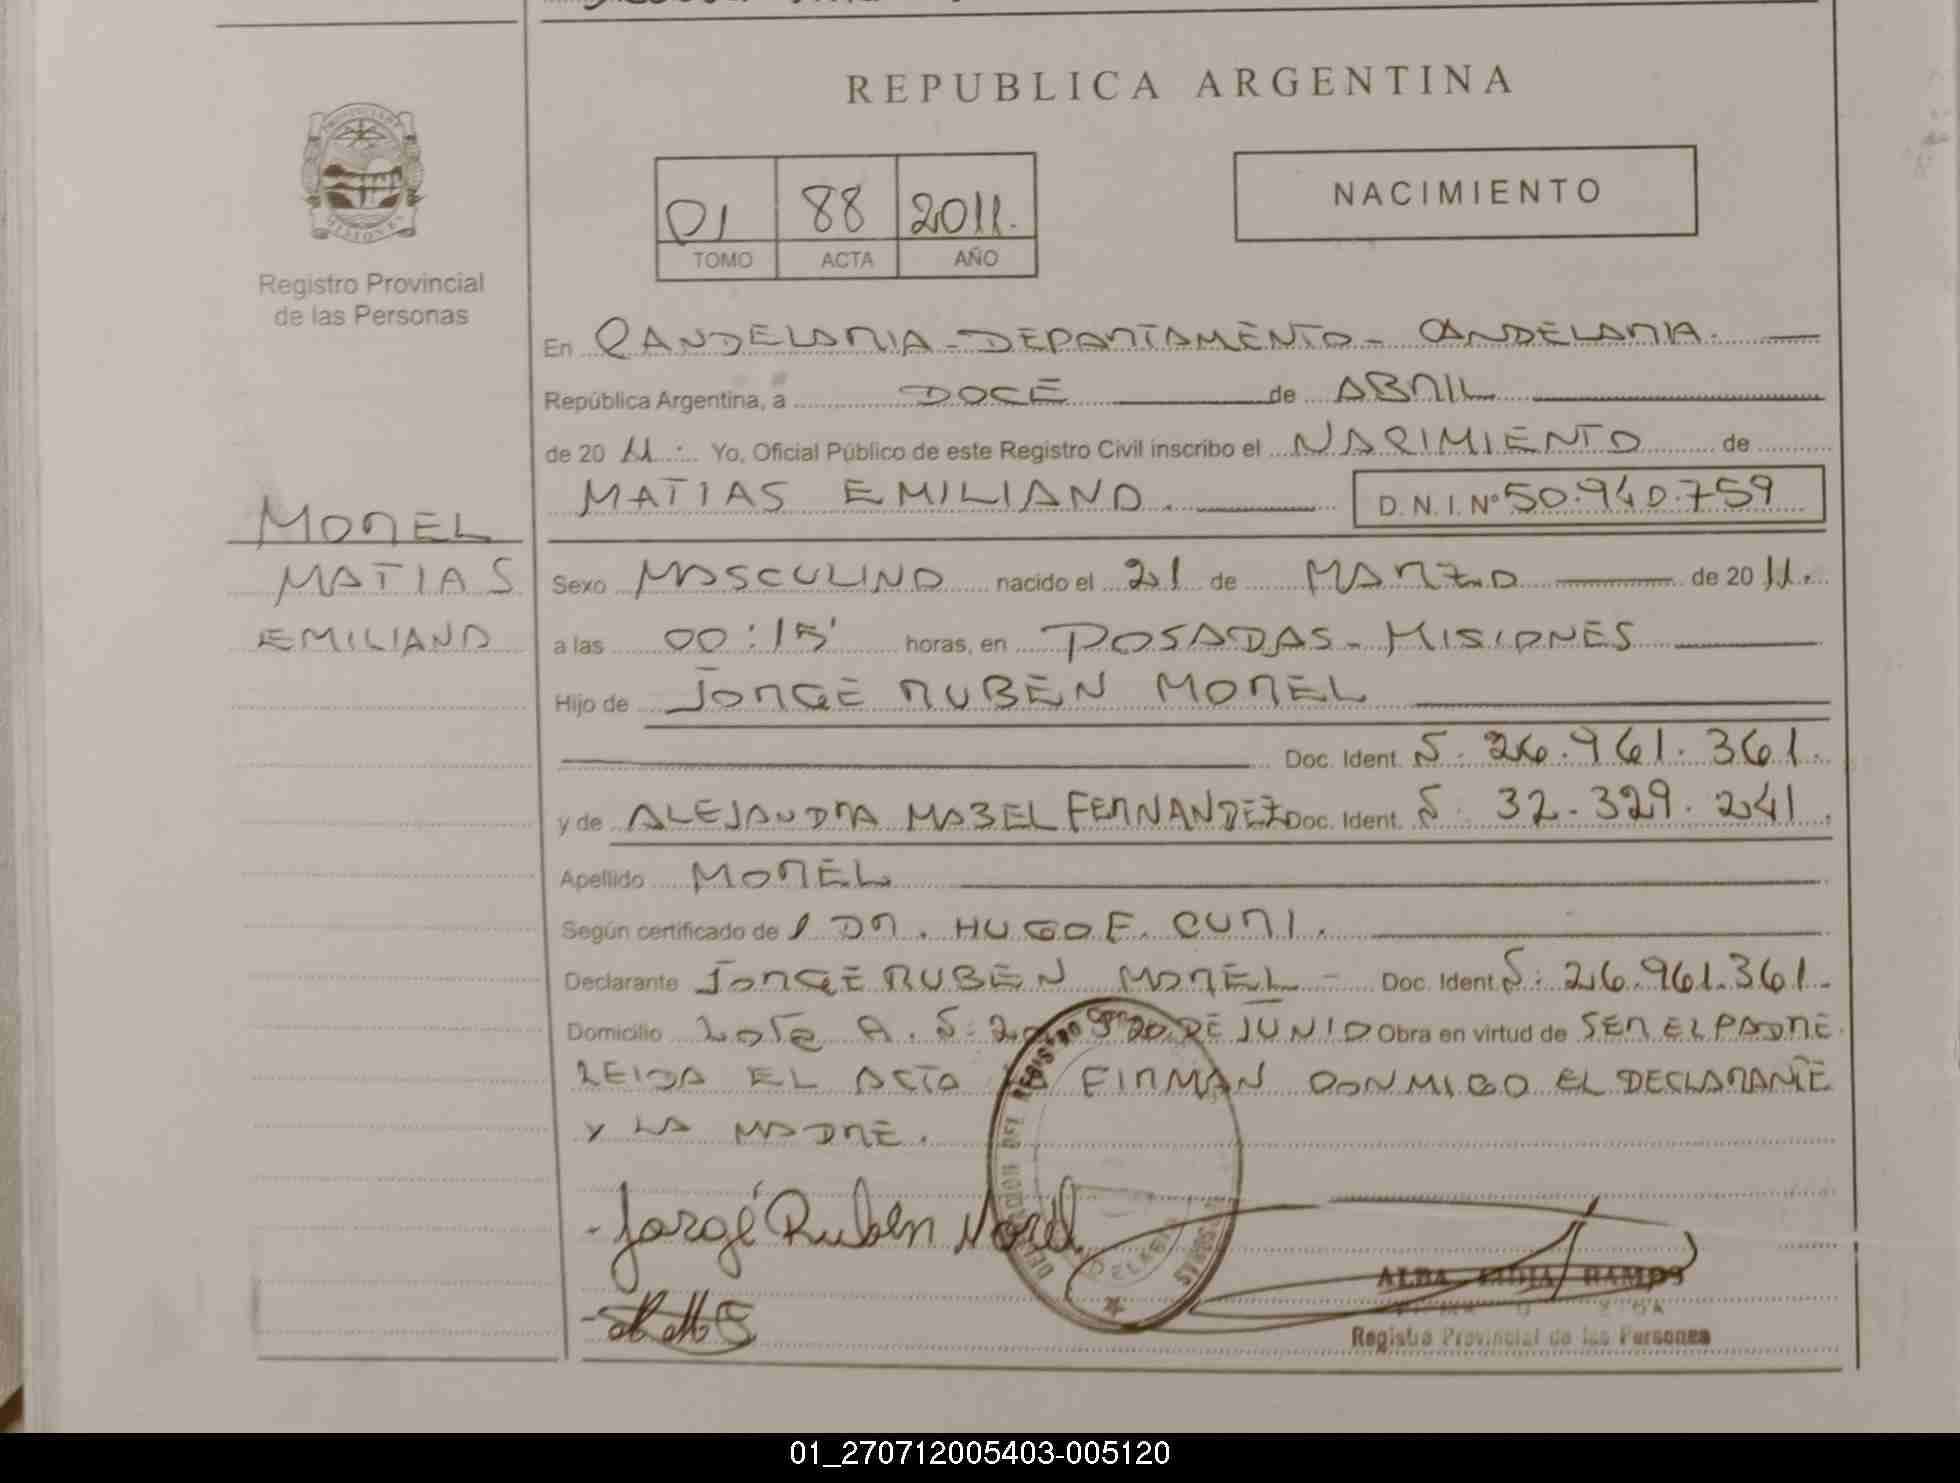 REPUBLICA ARGENTINA
PROVINCIA DE
MISIONES
Registro Provincial
de las Personas
01 88 2011.
TOMO ACTA AÑO
NACIMIENTO
En CANDELARIA - DEPARTAMENTO - CANDELARIA.
República Argentina, a DOCE de ABRIL
de 20 11. Yo, Oficial Público de este Registro Civil inscribo el NACIMIENTO de
MATIAS EMILIANO. D.N.I. Nº 50.940.759
MOREL
MATIAS
EMILIANO
Sexo MASCULINO nacido el 21 de MARZO de 20 11.
a las 00:15' horas, en POSADAS - MISIONES
Hijo de JORGE RUBEN MOREL
Doc. Ident. 26.961.361.
y de ALEJANDRA MABEL FERNANDEZ Doc. Ident. 32.329.241.
Apellido MOREL
Según certificado de DR. HUGO E. CURI.
Declarante JORGE RUBEN MOREL - Doc. Ident. 26.961.361.
Domicilio LOTE A. 20 DE JUNIO Obra en virtud de SER EL PADRE
LEIDA EL ACTA LA FIRMAN CONMIGO EL DECLARANTE
Y LA MADRE.
- Jorge Ruben Morel
ALBA LIDIA RAMOS
Registro Provincial de las Personas
01_270712005403-005120